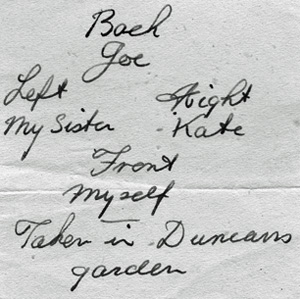 Back
Joe
Left Right
My Sister Kate
Front
Myself
Taken in Duncans
garden